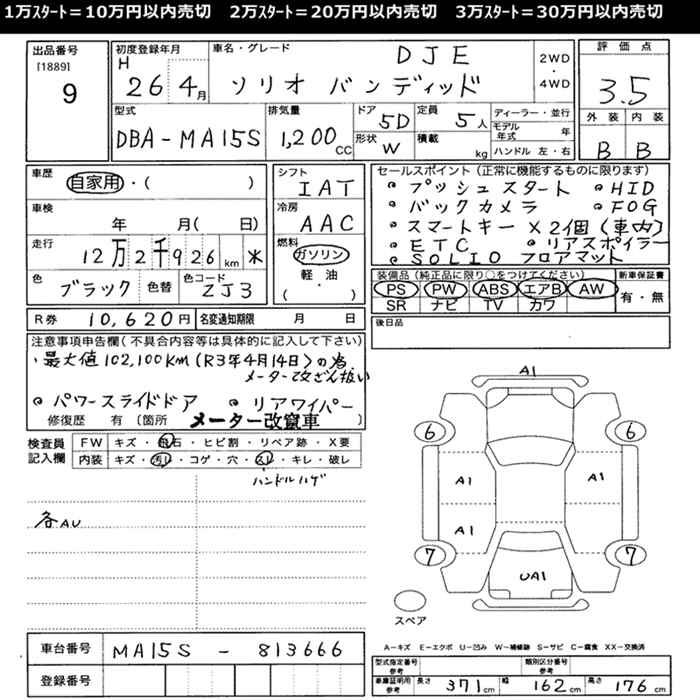 1万ｽﾀｰﾄ＝10万円以内売切　2万ｽﾀｰﾄ＝20万円以内売切　3万ｽﾀｰﾄ＝30万円以内売切
出品番号
[1889]
9
初度登録年月
H
26 4月
車名・グレード
DJE
ソリオ バンディッド
2WD
・
4WD
評価点
3.5
外装 内装
B B
型式
DBA-MA15S
排気量
1,200 CC
ドア 5D
形状 W
定員 5人
積載 kg
ディーラー・並行
モデル年式 年
ハンドル 左・右
車歴
自家用・( )
車検
年 月( 日)
走行
12万2千926km
色
ブラック
色替
色コード
ZJ3
シフト
IAT
冷房
AAC
燃料
ガソリン
軽・油
・( )
セールスポイント(正常に機能するものに限ります)
・プッシュスタート ・HID
・バックカメラ ・FOG
・スマートキー×2個(車内)
・ETC ・リアスポイラー
・SOLIO フロアマット
装備品(純正品に限り○をつけてください)
新車保証書
PS PW ABS エアB AW
SR ナビ TV カワ
有・無
後日品
R券 10,620円
名変通知期限 月 日
注意事項申告欄(不具合内容等は具体的に記入して下さい)
・最大値102,100KM(R3年4月14日)の為
メーター改ざん扱い
・パワースライドドア ・リアワイパー
修復歴 有〔箇所 メーター改竄車 〕
検査員
記入欄
FW キズ・飛石・ヒビ割・リペア跡・X要
内装 キズ・汚レ・コゲ・穴・スレ・キレ・破レ
ハンドルハゲ
各AU
A1
6 6
A1 A1
A1
7 7
UA1
スペア
車台番号 MA15S - 813666
登録番号
A－キズ E－エクボ U－凹み W－補修跡 S－サビ C－腐食 XX－交換済
型式指定番号
参考
類別区分番号
参考
車庫証明用
参考
長さ 371cm 幅 162cm 高さ 176cm